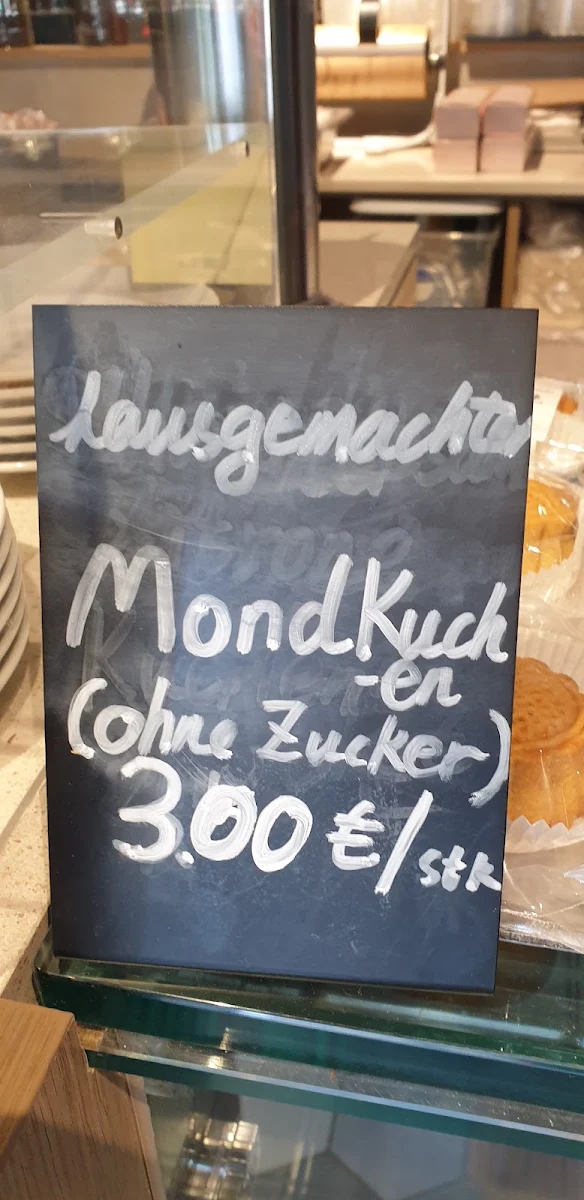 hausgemachter
MondKuch
-en
(ohne Zucker)
3.00 €/stk